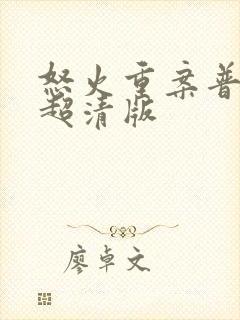 怒火重案普
超清版
廖卓文